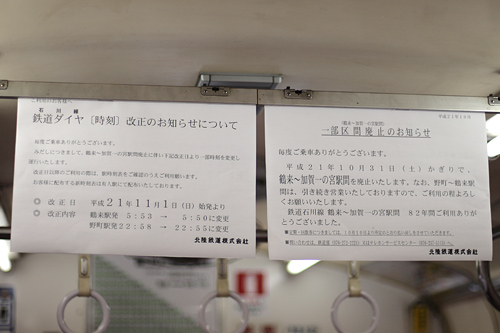 ご利用のお客様へ
石川線
鉄道ダイヤ〔時刻〕改正のお知らせについて
毎度ご乗車ありがとうございます。
改正日以降のご利用の際は、新時刻表をご確認のうえご利用願います。
お客様に配布する新時刻表は有人駅にて配布いたしております。
◎ 改 正 日 平成21年11月1日(日)始発より
◎ 改正内容 鶴来駅発 5:53 → 5:50に変更
野町駅発22:58 → 22:55に変更
北陸鉄道株式会社
(鶴来~加賀一の宮駅間)
一部区間廃止のお知らせ
毎度ご乗車ありがとうございます。
平成21年10月31日(土)かぎりで、
鶴来~加賀一の宮駅間を廃止いたします。なお、野町~鶴来駅
間は、引き続き営業いたしておりますので、ご利用の程よろし
くお願いいたします。
鉄道石川線 鶴来~加賀一の宮駅間 82年間ご利用ありが
とうございました。
北陸鉄道株式会社